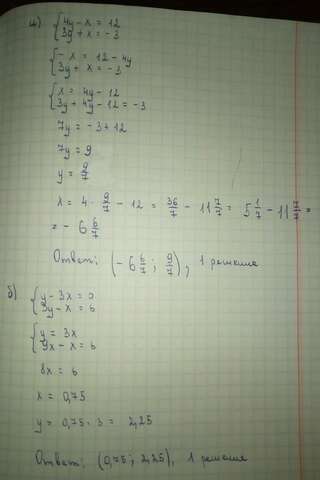 а) { 4y - x = 12
3y + x = -3
{ -x = 12 - 4y
3y + x = -3
{ x = 4y - 12
3y + 4y - 12 = -3
7y = -3 + 12
7y = 9
y = 9/7
x = 4 · 9/7 - 12 = 36/7 - 11 7/7 = 5 1/7 - 11 7/7 =
= -6 6/7
Ответ: (-6 6/7 ; 9/7), 1 решение
б) { y - 3x = 0
3y - x = 6
{ y = 3x
9x - x = 6
8x = 6
x = 0,75
y = 0,75 · 3 = 2,25
Ответ: (0,75 ; 2,25), 1 решение